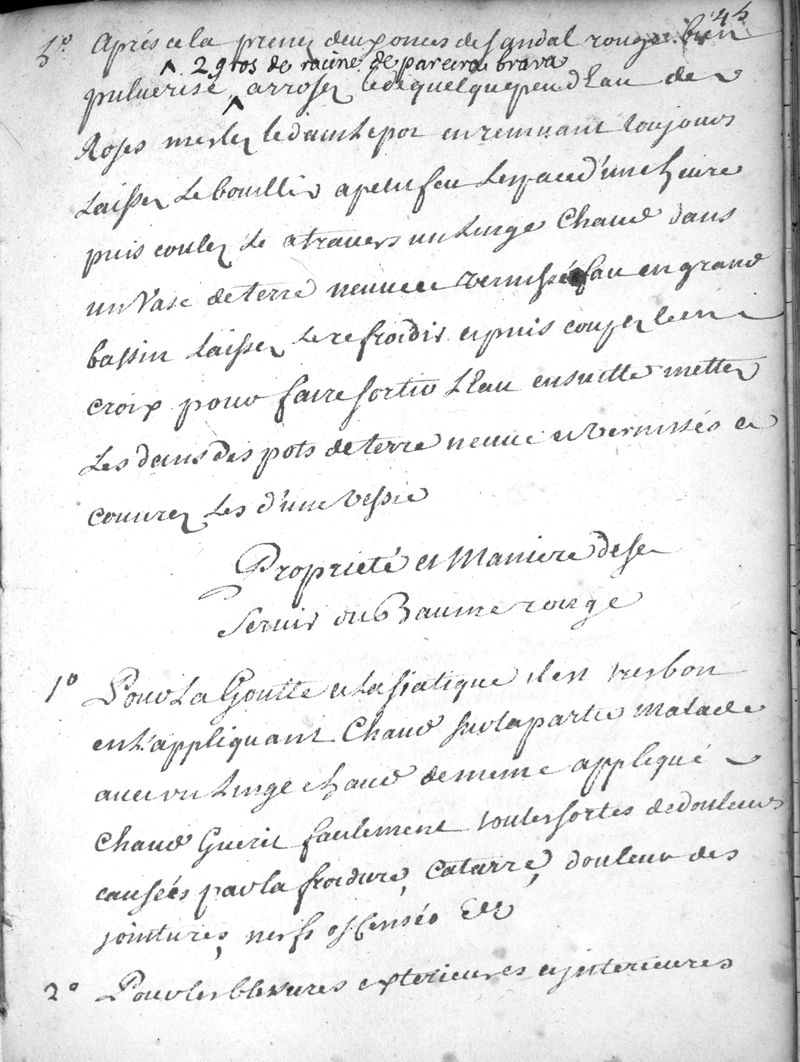 45
3º Après cela prenez deux onces de sandal rouge bien
^ 2 gros de racine de pareira brava
pulverisé ^ arrosez le de quelque peu d'Eau de
Roses meslez le dans le pot en remuant toujours
Laissez Le bouillir a petit feu L'espace d'une heure
puis coulez Le a travers un Linge Chaud dans
un Vase de terre neuve et vernissée fait en grand
bassin Laissez Le refroidir et puis coupez le en
croix pour faire sortir L'Eau ensuitte mettez
Les dans des pots de terre neuve et vernissés et
couvrez Les d'une Vessie
Proprieté et Maniere de se
Servir du Baume rouge
1º Pour La Goutte et La siatique il est tres bon
en L'appliquant Chaud sur la partie Malade
avec un Linge chaud de meme appliqué
Chaud Guerit facilement toutes sortes de douleurs
causées par la froidure, Catarre, douleur des
jointures, nerfs offensés Etc
2º Pour les blessures exterieures et interieures